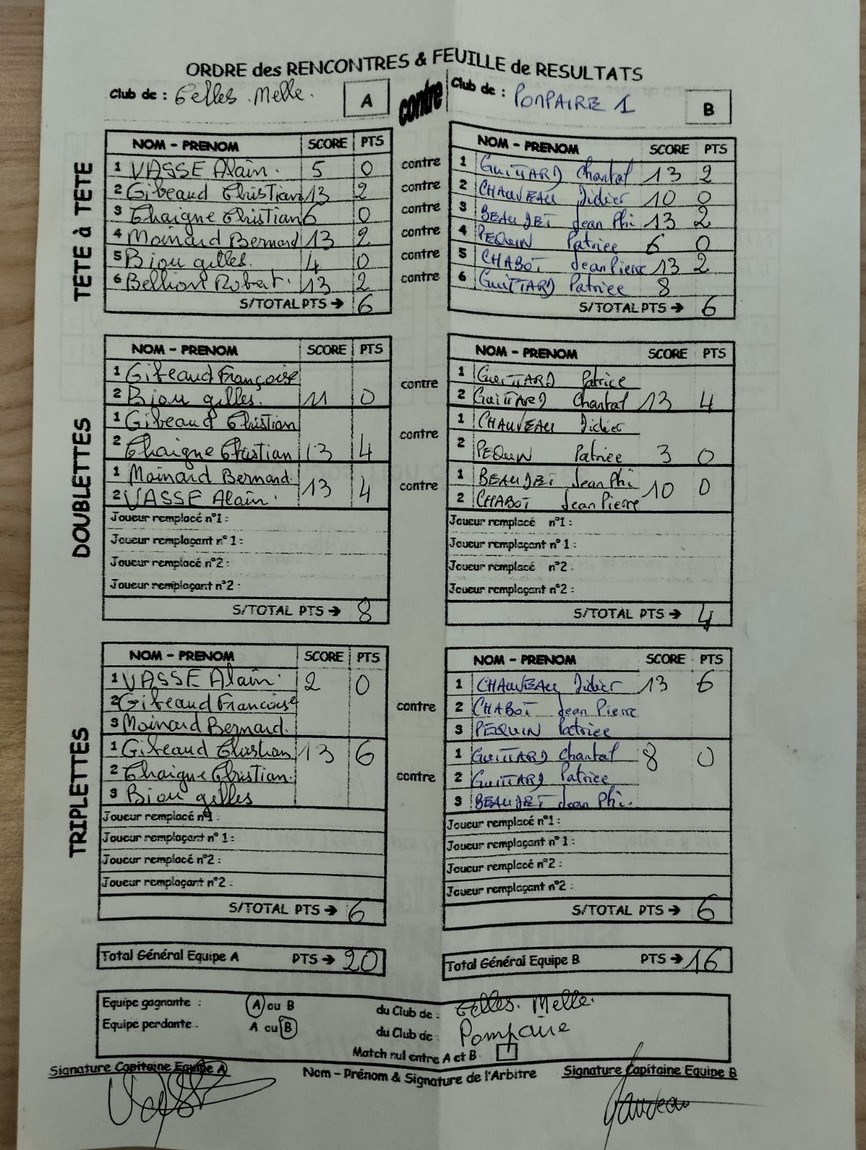 ORDRE des RENCONTRES & FEUILLE de RESULTATS
Club de : Celles. Melle. A contre Club de : POMPAIRE 1 B
TETE à TETE
NOM - PRENOM SCORE PTS NOM - PRENOM SCORE PTS
1 VASSE Alain. 5 0 contre 1 GUITTARD Chantal 13 2
2 Gibeaud Christian 13 2 contre 2 CHAUVEAU Didier 10 0
3 Chaigne Christian 6 0 contre 3 BEAUJET Jean Phi 13 2
4 Moinard Bernard 13 2 contre 4 PEQUIN Patrice 6 0
5 Biou gilles. 4 0 contre 5 CHABOT Jean Pierre 13 2
6 Bellion Robert. 13 2 contre 6 GUITTARD Patrice 8
S/TOTAL PTS → 6 S/TOTAL PTS → 6
DOUBLETTES
NOM - PRENOM SCORE PTS NOM - PRENOM SCORE PTS
1 Gibeaud Françoise contre 1 GUITTARD Patrice
2 Biou gilles. 11 0 2 GUITTARD Chantal 13 4
1 Gibeaud Christian contre 1 CHAUVEAU Didier
2 Chaigne Christian 13 4 2 PEQUIN Patrice 3 0
1 Moinard Bernard. contre 1 BEAUJET Jean Phi
2 VASSE Alain. 13 4 2 CHABOT Jean Pierre 10 0
Joueur remplacé n°1 : Joueur remplacé n°1 :
Joueur remplaçant n° 1 : Joueur remplaçant n° 1 :
Joueur remplacé n°2 : Joueur remplacé n°2 :
Joueur remplaçant n°2 : Joueur remplaçant n°2 :
S/TOTAL PTS → 8 S/TOTAL PTS → 4
TRIPLETTES
NOM - PRENOM SCORE PTS NOM - PRENOM SCORE PTS
1 VASSE Alain. 2 0 1 CHAUVEAU Didier 13 6
2 Gibeaud Francoise contre 2 CHABOT Jean Pierre
3 Moinard Bernard. 3 PEQUIN Patrice
1 Gibeaud Christian 13 6 1 GUITTARD Chantal 8 0
2 Chaigne Christian. contre 2 GUITTARD Patrice
3 Biou gilles 3 BEAUJET Jean Phi.
Joueur remplacé n°1 : Joueur remplacé n°1 :
Joueur remplaçant n° 1 : Joueur remplaçant n° 1 :
Joueur remplacé n°2 : Joueur remplacé n°2 :
Joueur remplaçant n°2 : Joueur remplaçant n°2 :
S/TOTAL PTS → 6 S/TOTAL PTS → 6
Total Général Equipe A PTS → 20 Total Général Equipe B PTS → 16
Equipe gagnante : A ou B du Club de : Celles. Melle.
Equipe perdante : A ou B du Club de : Pompaire
Match nul entre A et B
Signature Capitaine Equipe A Nom - Prénom & Signature de l'Arbitre Signature Capitaine Equipe B